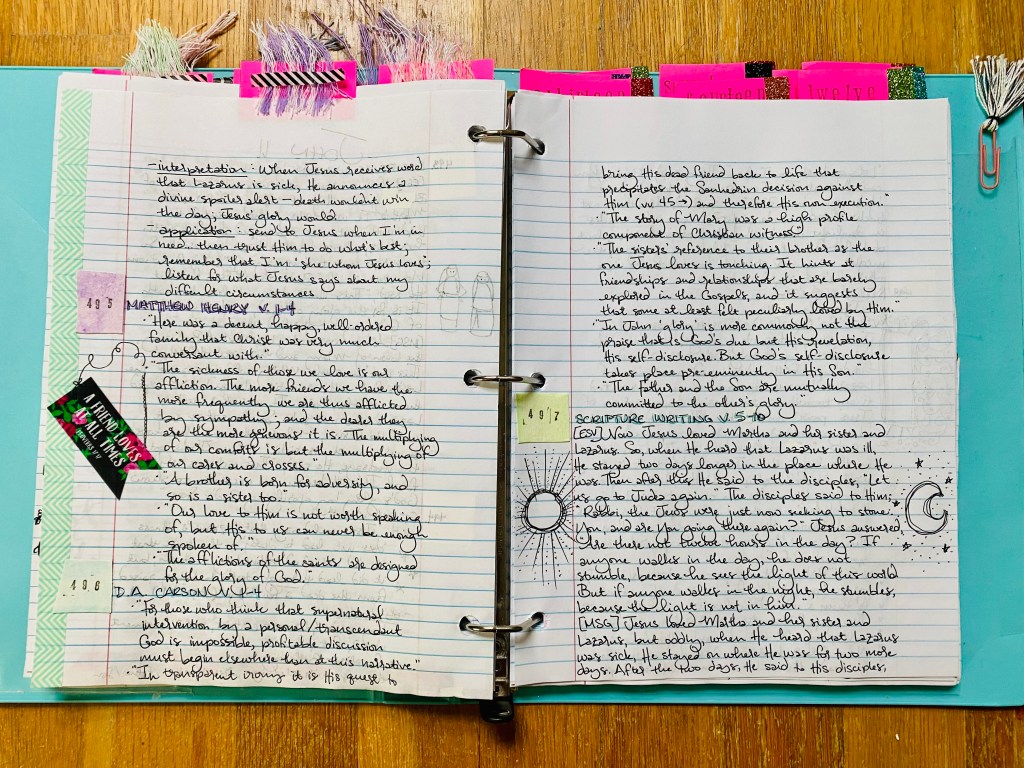 thirteen
seventeen
twelve
- interpretation: When Jesus receives word
that Lazarus is sick, He announces a
divine spoiler alert - death wouldn't win
the day; Jesus' glory would
- application: send to Jesus when I'm in
need.. then trust Him to do what's best;
remember that I'm "she whom Jesus loves";
listen for what Jesus says about my
difficult circumstances
495
MATTHEW HENRY V. 1-4
· "Here was a decent, happy, well-ordered
family that Christ was very much
conversant with."
· "The sickness of those we love is our
affliction. The more friends we have the
more frequently we are thus afflicted
by sympathy; and the dearer they
are the more grievous it is. The multiplying
of our comforts is but the multiplying of
our cares and crosses."
· "A brother is born for adversity, and
so is a sister too."
· "Our love to Him is not worth speaking
of, but His to us can never be enough
spoken of."
· "The afflictions of the saints are designed
for the glory of God."
A FRIEND LOVES
AT ALL TIMES
PROVERBS 17:17
496
D.A. CARSON V. 1-4
· "For those who think that supernatural
intervention by a personal/transcendent
God is impossible, profitable discussion
must begin elsewhere than at this narrative."
· "In transparent irony it is His quest to
bring His dead friend back to life that
precipitates the Sanhedrin decision against
Him (vv 45→) and therefore His own execution."
· "The story of Mary was a high profile
component of Christian witness."
· "The sisters' reference to their brother as the
one Jesus loves is touching. It hints at
friendships and relationships that are barely
explored in the Gospels, and it suggests
that some at least felt peculiarly loved by Him."
· "In John 'glory' is more commonly not the
praise that is God's due but His revelation,
His self-disclosure. But God's self-disclosure
takes place pre-eminently in His Son."
· "The Father and the Son are mutually
committed to the other's glory."
497
SCRIPTURE WRITING V. 5-10
[ESV] Now Jesus loved Martha and her sister and
Lazarus. So, when He heard that Lazarus was ill,
He stayed two days longer in the place where He
was. Then after this He said to the disciples, "Let
us go to Judea again." The disciples said to Him,
"Rabbi, the Jews were just now seeking to stone
You, and are You going there again?" Jesus answered,
"Are there not twelve hours in the day? If
anyone walks in the day, he does not
stumble, because he sees the light of this world
But if anyone walks in the night, he stumbles,
because the light is not in him."
[MSG] Jesus loved Martha and her sister and
Lazarus, but oddly, when He heard that Lazarus
was sick, He stayed on where He was for two more
days. After the two days, He said to His disciples,